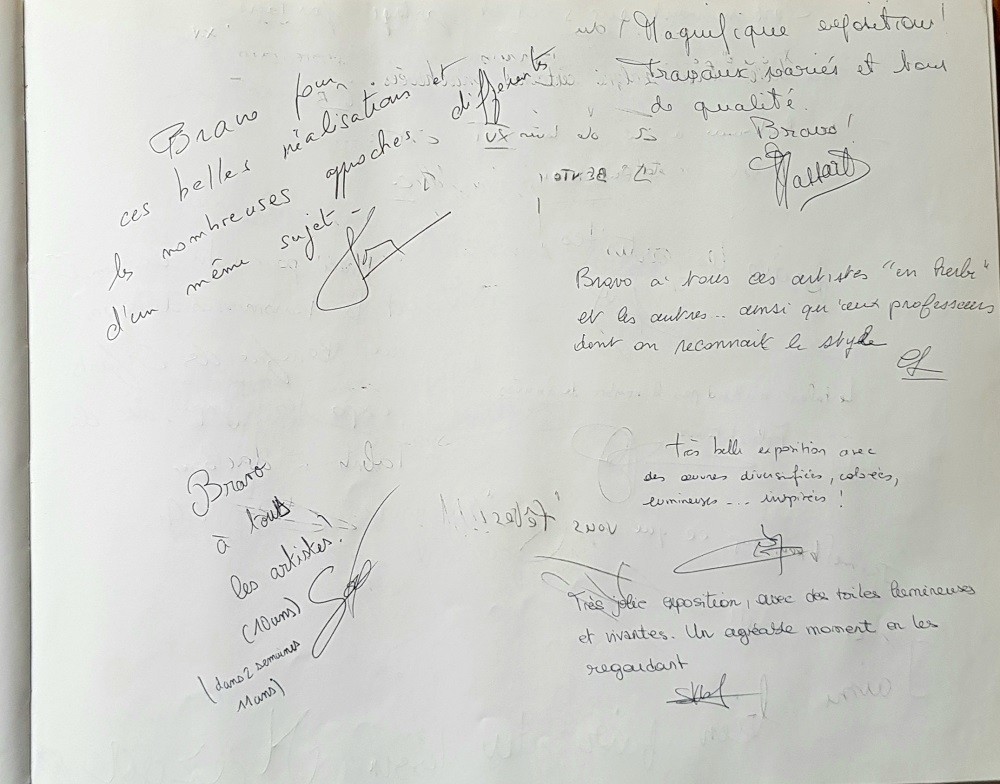 Bravo pour
ces belles réalisations et
les nombreuses approches différentes
d'un même sujet.
Magnifique exposition!
Travaux variés et tous
de qualité.
Bravo!
Bravo à tous ces artistes "en herbe"
et les autres... ainsi qu'aux professeurs
dont on reconnait le style
Bravo
à tous
les artistes!
(10ans)
(dans 2 semaines
11ans)
très belle exposition avec
des œuvres diversifiées, colorées,
lumineuses... inspirées!
Très jolie exposition, avec des toiles lumineuses
et vivantes. Un agréable moment en les
regardant